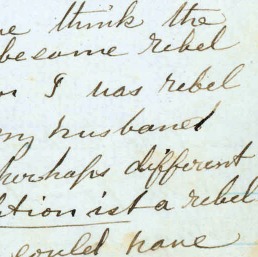 think the
become rebel
I was rebel
my husband
perhaps different
ition ist a rebel
could have